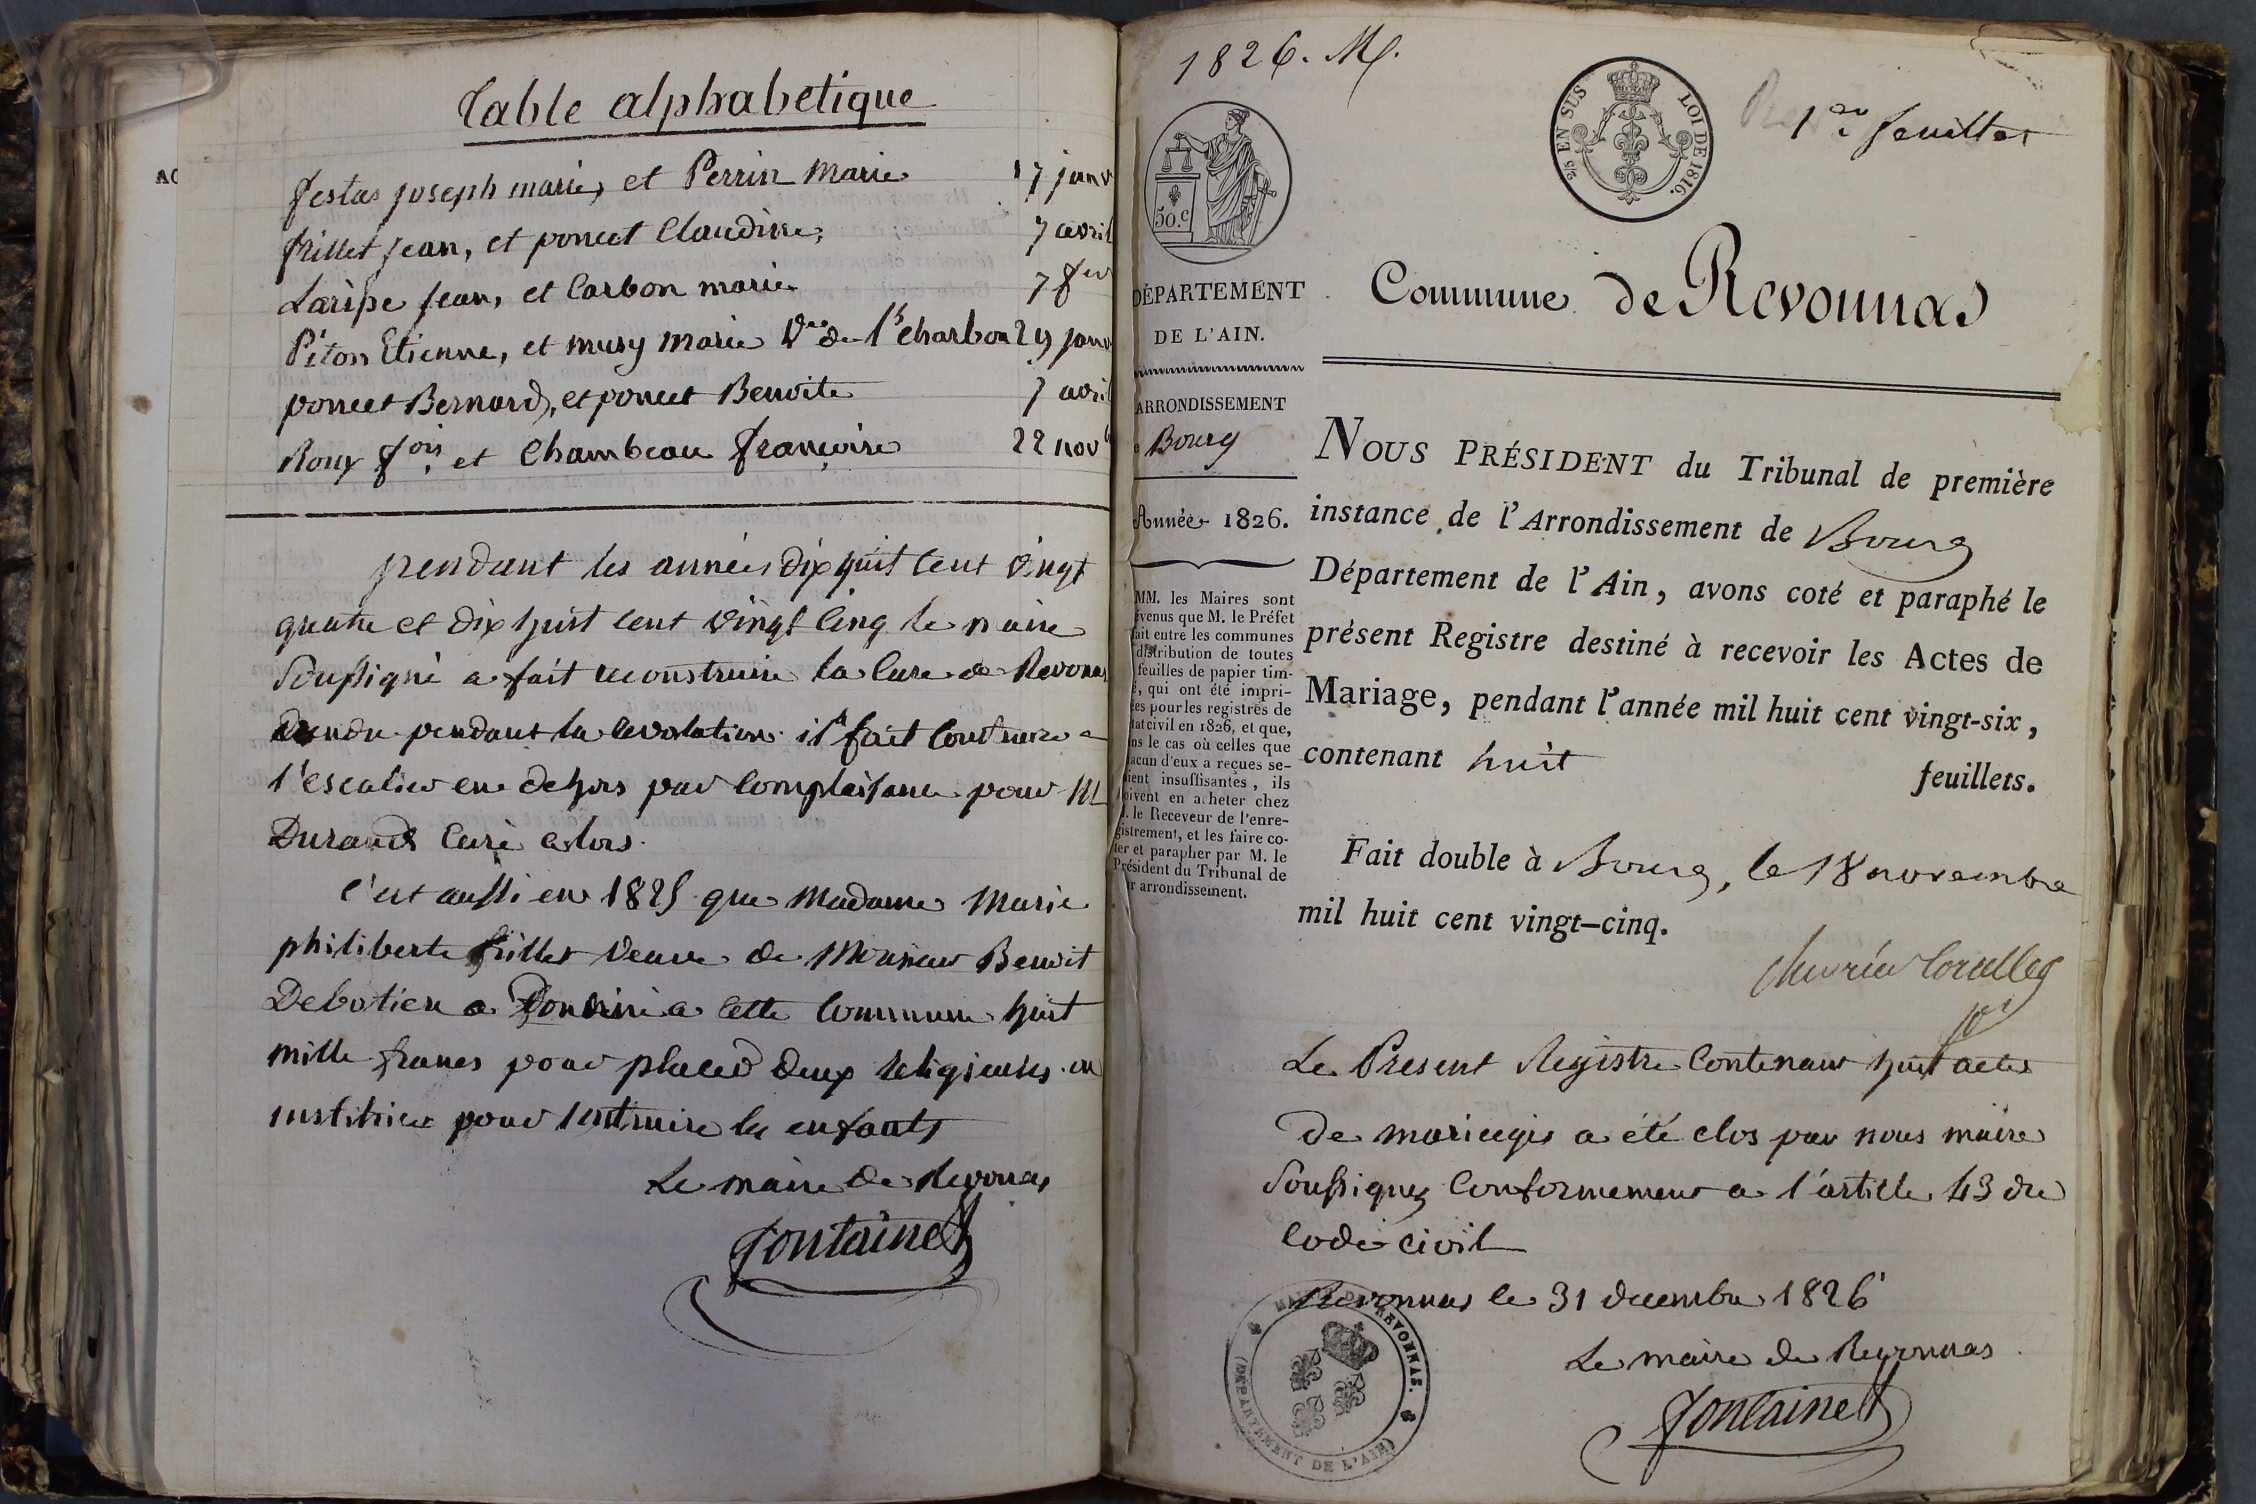 Table alphabetique
festas joseph marie, et Perrin Marie 17 janv
frillet jean, et poncet Claudine, 7 avril
Laripe Jean, et Carbon marie 7 fev
Piton Etienne, et musy marie Vve de ls charbon 29 janv
poncet Bernard, et poncet Benoite 7 avril
Roux fois. et Chambeau françoise 22 novb
pendant les années dix huit cent vingt
quatre et dix huit cent vingt cinq le maire
Soussigné a fait reconstruire la Cure de Revonas
vendu pendant la revolution. il fait Construire
l'escalier en dehors par Complaisance pour M
Durand Curé alors.
C'est aussi en 1825 que Madame Marie
philiberte frillet veuve de Monsieur Benoit
Debotien a Donné a cette Commune huit
mille francs pour placer deux religieuses en
institrice pour instruire les enfants
Le maire de Revonas
fontaine
1826. M.
50.c
%s EN SUS
LOI DE 1816.
1er feuillet
DÉPARTEMENT
DE L'AIN.
ARRONDISSEMENT
Bourg
Année 1826.
MM. les Maires sont
évenus que M. le Préfet
fait entre les communes
distribution de toutes
feuilles de papier tim-
é, qui ont été impri-
ées pour les registres de
tat civil en 1826, et que,
ns le cas où celles que
acun d'eux a reçues se-
ient insuffisantes, ils
oivent en acheter chez
. le Receveur de l'enre-
gistrement, et les faire co-
ter et parapher par M. le
Président du Tribunal de
r arrondissement.
Commune de Revonnas
NOUS PRÉSIDENT du Tribunal de première
instance de l'Arrondissement de Bourg
Département de l'Ain, avons coté et paraphé le
présent Registre destiné à recevoir les Actes de
Mariage, pendant l'année mil huit cent vingt-six,
contenant huit feuillets.
Fait double à Bourg, le 18 novembre
mil huit cent vingt-cinq.
Le Present Registre Contenant huit actes
de mariages a été clos par nous maire
Soussignez Conformement a l'article 43 du
Code civil
Revonnas le 31 decembre 1826
Le maire de Revonnas
fontaine
MAIRIE DE REVONNAS.
(DÉPARTEMENT DE L'AIN)